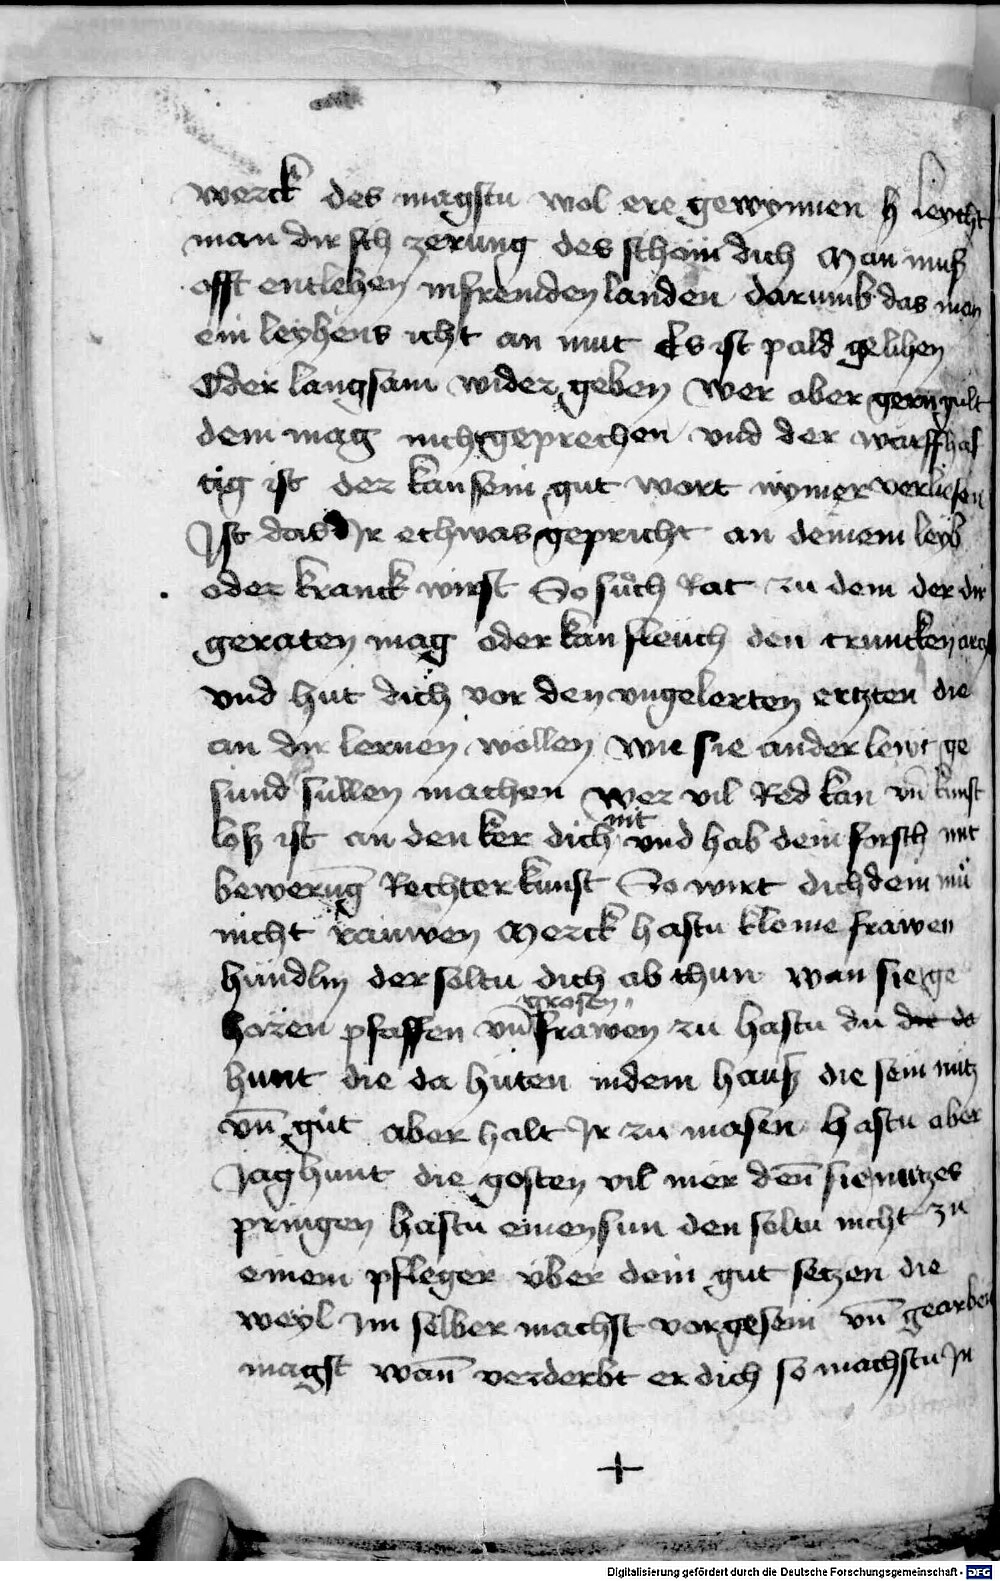 werck des magstu wol ere gewynnen h leycht
man dir sich zerung des scham dich Man muß
offt entlehen in fremden landen darumb das man
ein leyhens icht an mut Es ist pald gelihen
Oder langsam wider geben Wer aber gern gult
dem mag nicht geprechen vnd der warffhaf
tig ist der kan sein gut wort nymer verliesen
Ist das Dir ethwas gepricht an deinem leyb
oder kranck wirst So such Rat zu dem der dir
geraten mag oder kan fleuch den truncken arcz
vnd hut dich vor den vngelerten ertzten die
an dir lernen wollen wie sie ander lewt ge
sund sullen machen Wer vil Red kan vn̄ kunst
loß ist an den ker dich nit vnd hab dein forsch mit
bewerūg Rechter kunst So wirt dich dein mü
nicht rauwen Merck hastu kleine frawen
hundlin der soltu dich ab thun wan sie ge
horen pfaffen vn̄ grosen frawen zu hastu du die da
hunt die da hüten in dem hauß die sein nütz
vn̄ gůt aber halt Ir zu masen hastu aber
Jaghunt die gosten vil mer den̄ sie nutzes
pringen hastu einen sun den soltu nicht zu
einem pfleger vber dein gut setzen die
weyl Im selber machst vorgesein vn̄ gearbei
magst wan̄ verderbt er dich so machstu In
Digitalisierung gefördert durch die Deutsche Forschungsgemeinschaft - DFG